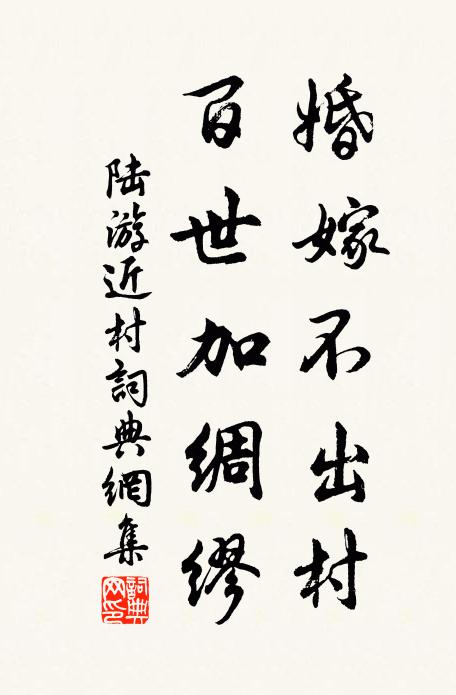 婚嫁不出村
百世加綢缪
陆游近村詞典網集
詞典
网印